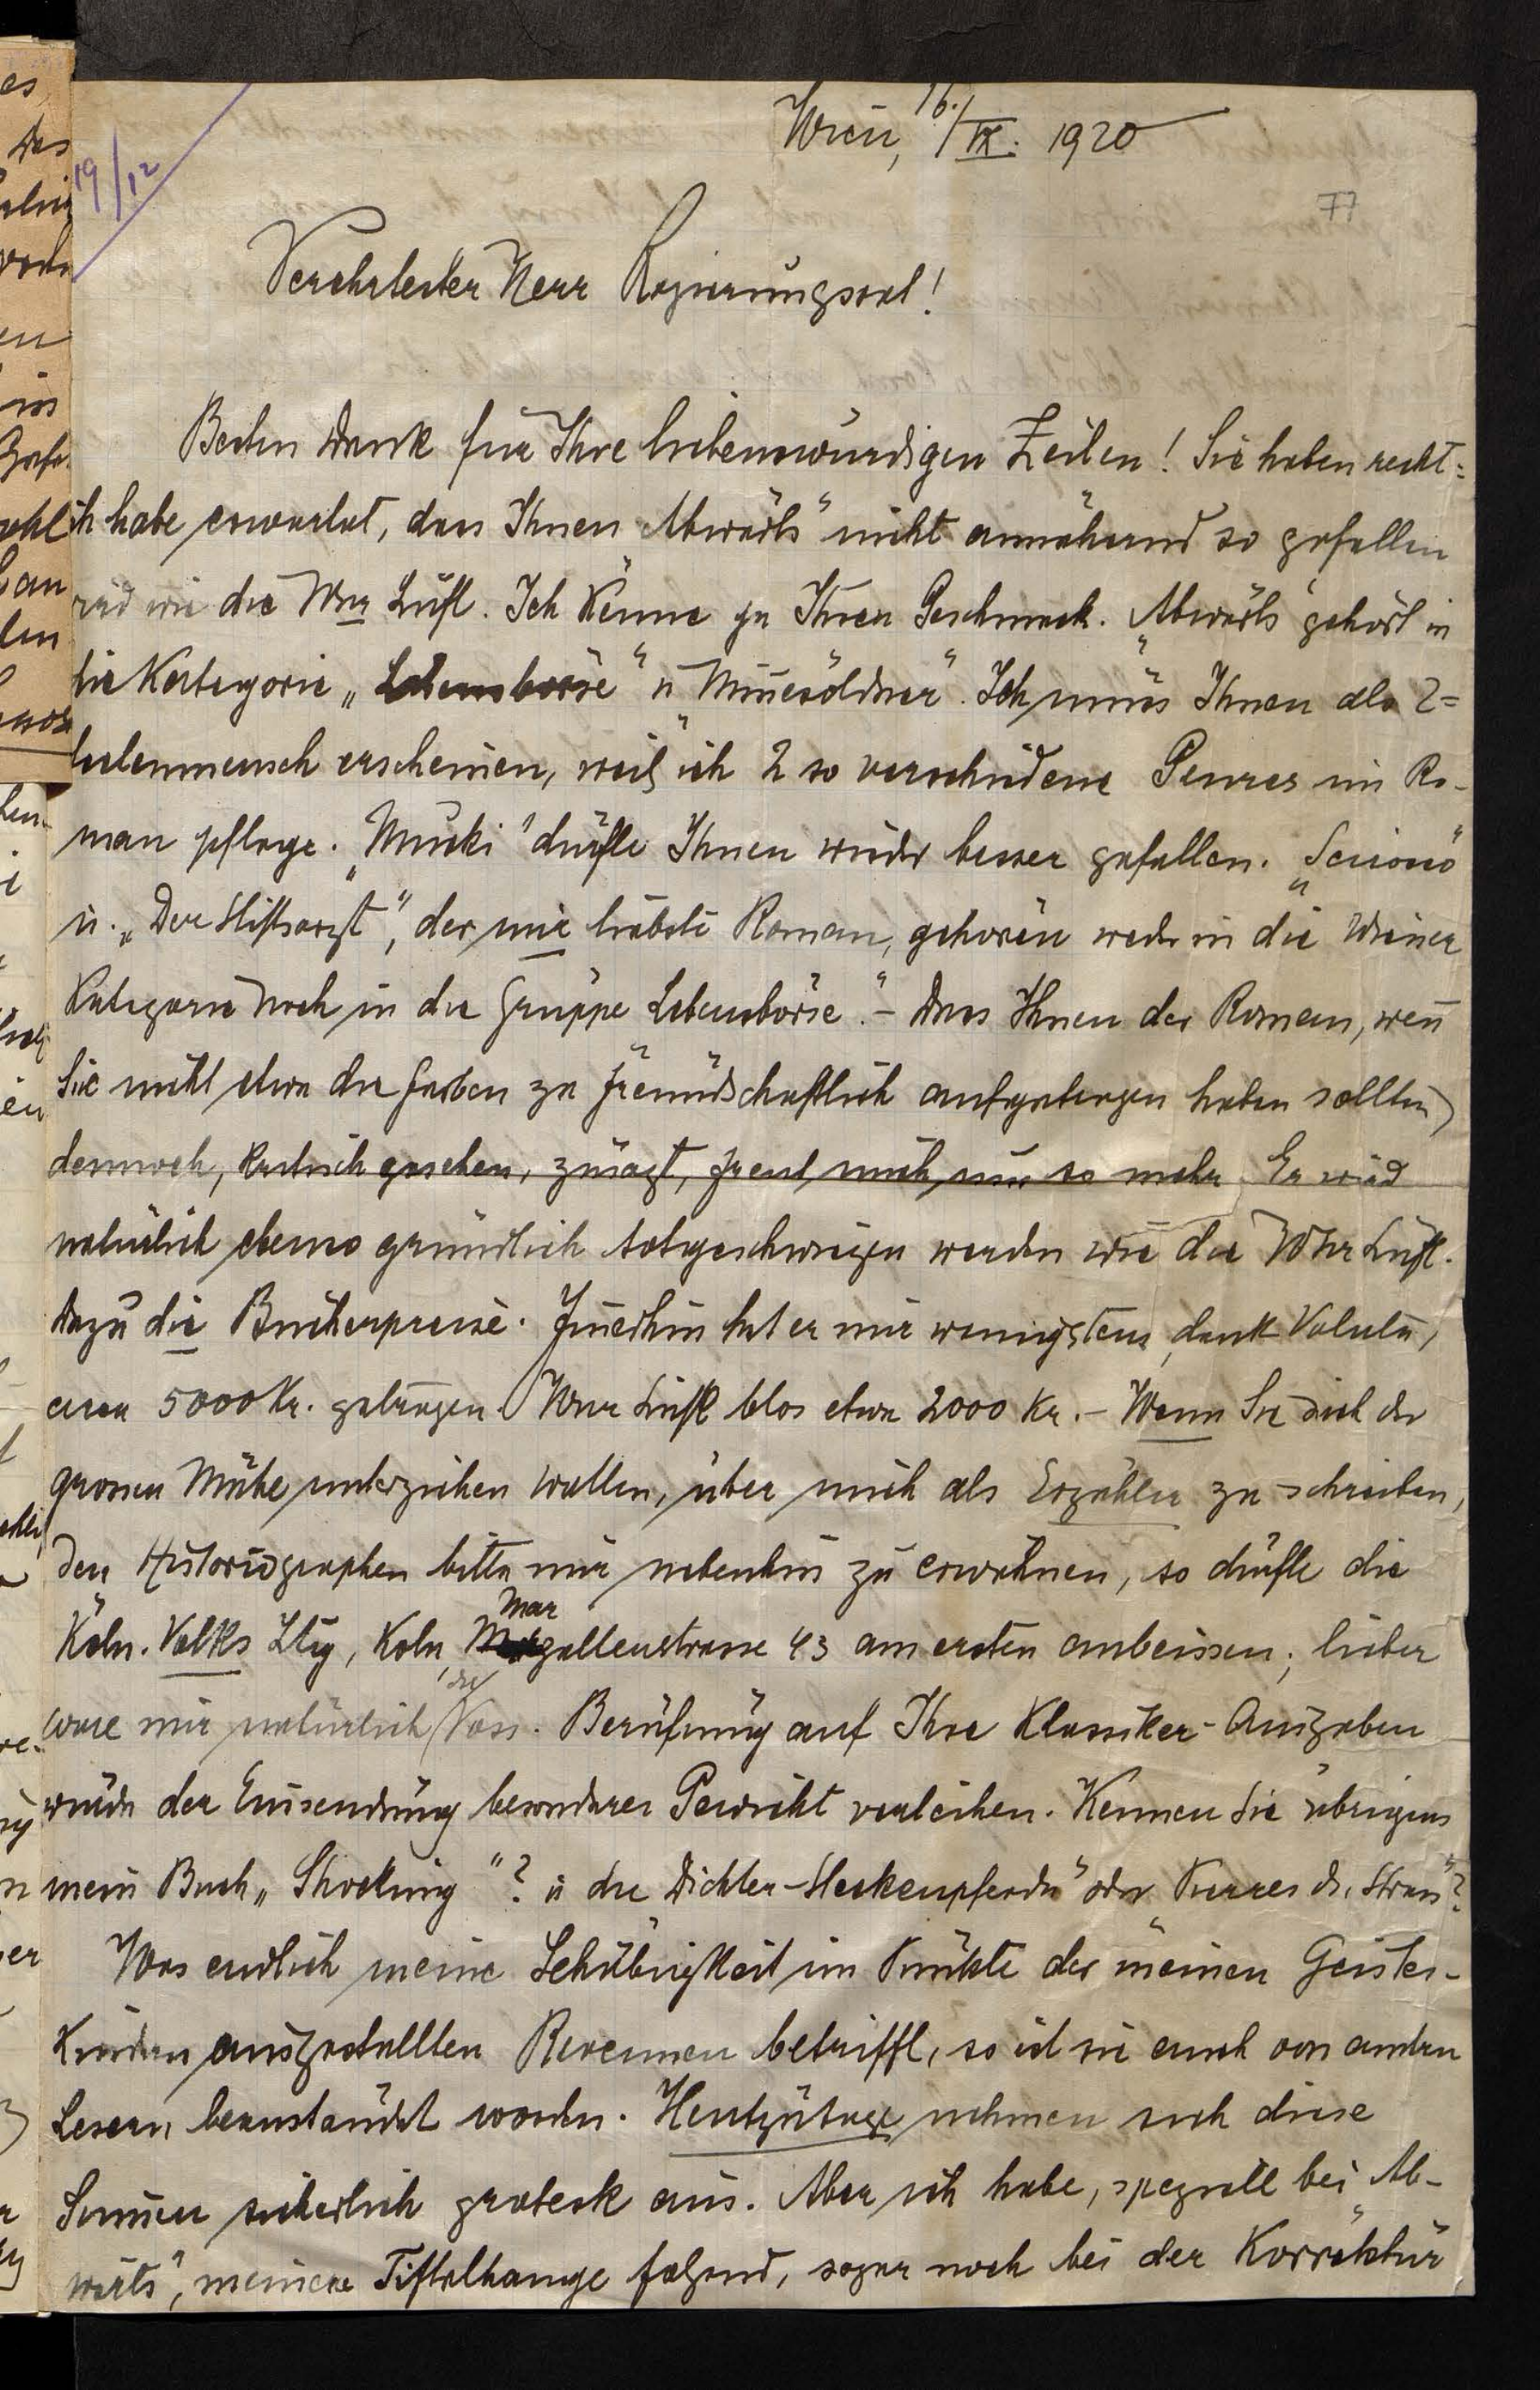 Wien, 16./IX. 1920
19/12
77
Verehrtester Herr Regierungsrat!
Besten Dank für Ihre liebenswürdigen Zeilen! Sie haben recht:
ich habe erwartet, dass Ihnen „Abwärts" nicht annähernd so gefallen
wird wie die Wnr Luft. Ich kenne ja Ihren Geschmack. „Abwärts" gehört in
die Kategorie „Lebensbörse" u „Minnesöldner". Ich muss Ihnen als 2=
seelenmensch erscheinen, weil ich 2 so verschiedene Genres im Ro-
man pflege. „Mucki" dürfte Ihnen wieder besser gefallen.
u. „Der Stiftsarzt", der mir liebste Roman, gehören weder in die Wiener
Kategorie noch in die Gruppe „Lebensbörse". – Dass Ihnen der Roman, wenn
Sie nicht etwa die Farben zu freundschaftlich aufgetragen haben sollten,
dennoch, kritisch gesehen, zusagt, freut mich um so mehr. Er wird
natürlich ebenso gründlich totgeschwiegen werden wie die Wnr Luft.
Dazu die Bücherpreise. Immerhin hat er mir wenigstens, dank Valuta,
circa 5000 Kr. getragen. Wnr Luft blos etwa 2000 Kr. – Wenn Sie sich der
grossen Mühe unterziehen wollen, über mich als Erzähler zu schreiben,
den Historiographen bitte nur nebenhin zu erwähnen, so dürfte die
Köln. Volks Ztg, Köln, Marzellenstrasse 43 am ersten anbeissen; lieber
wäre mir natürlich die Voss. Berufung auf Ihre Klassiker-Ausgaben
würde der Einsendung besonderes Gewicht verleihen. Kennen Sie übrigens
mein Buch „Shocking"? u die „Dichter-Steckenpferde" oder
Was endlich meine Schäbigkeit im Punkte der meinen Geistes-
kindern ausgestellten Revenuen betrifft, so ist sie auch von andern
Lesern beanständet worden. Heutzutage nehmen sich diese
Summen sicherlich grotesk aus. Aber ich habe, speziell bei „Ab-
wärts", meinem Tiftelhange folgend, sogar noch bei der Korrektur